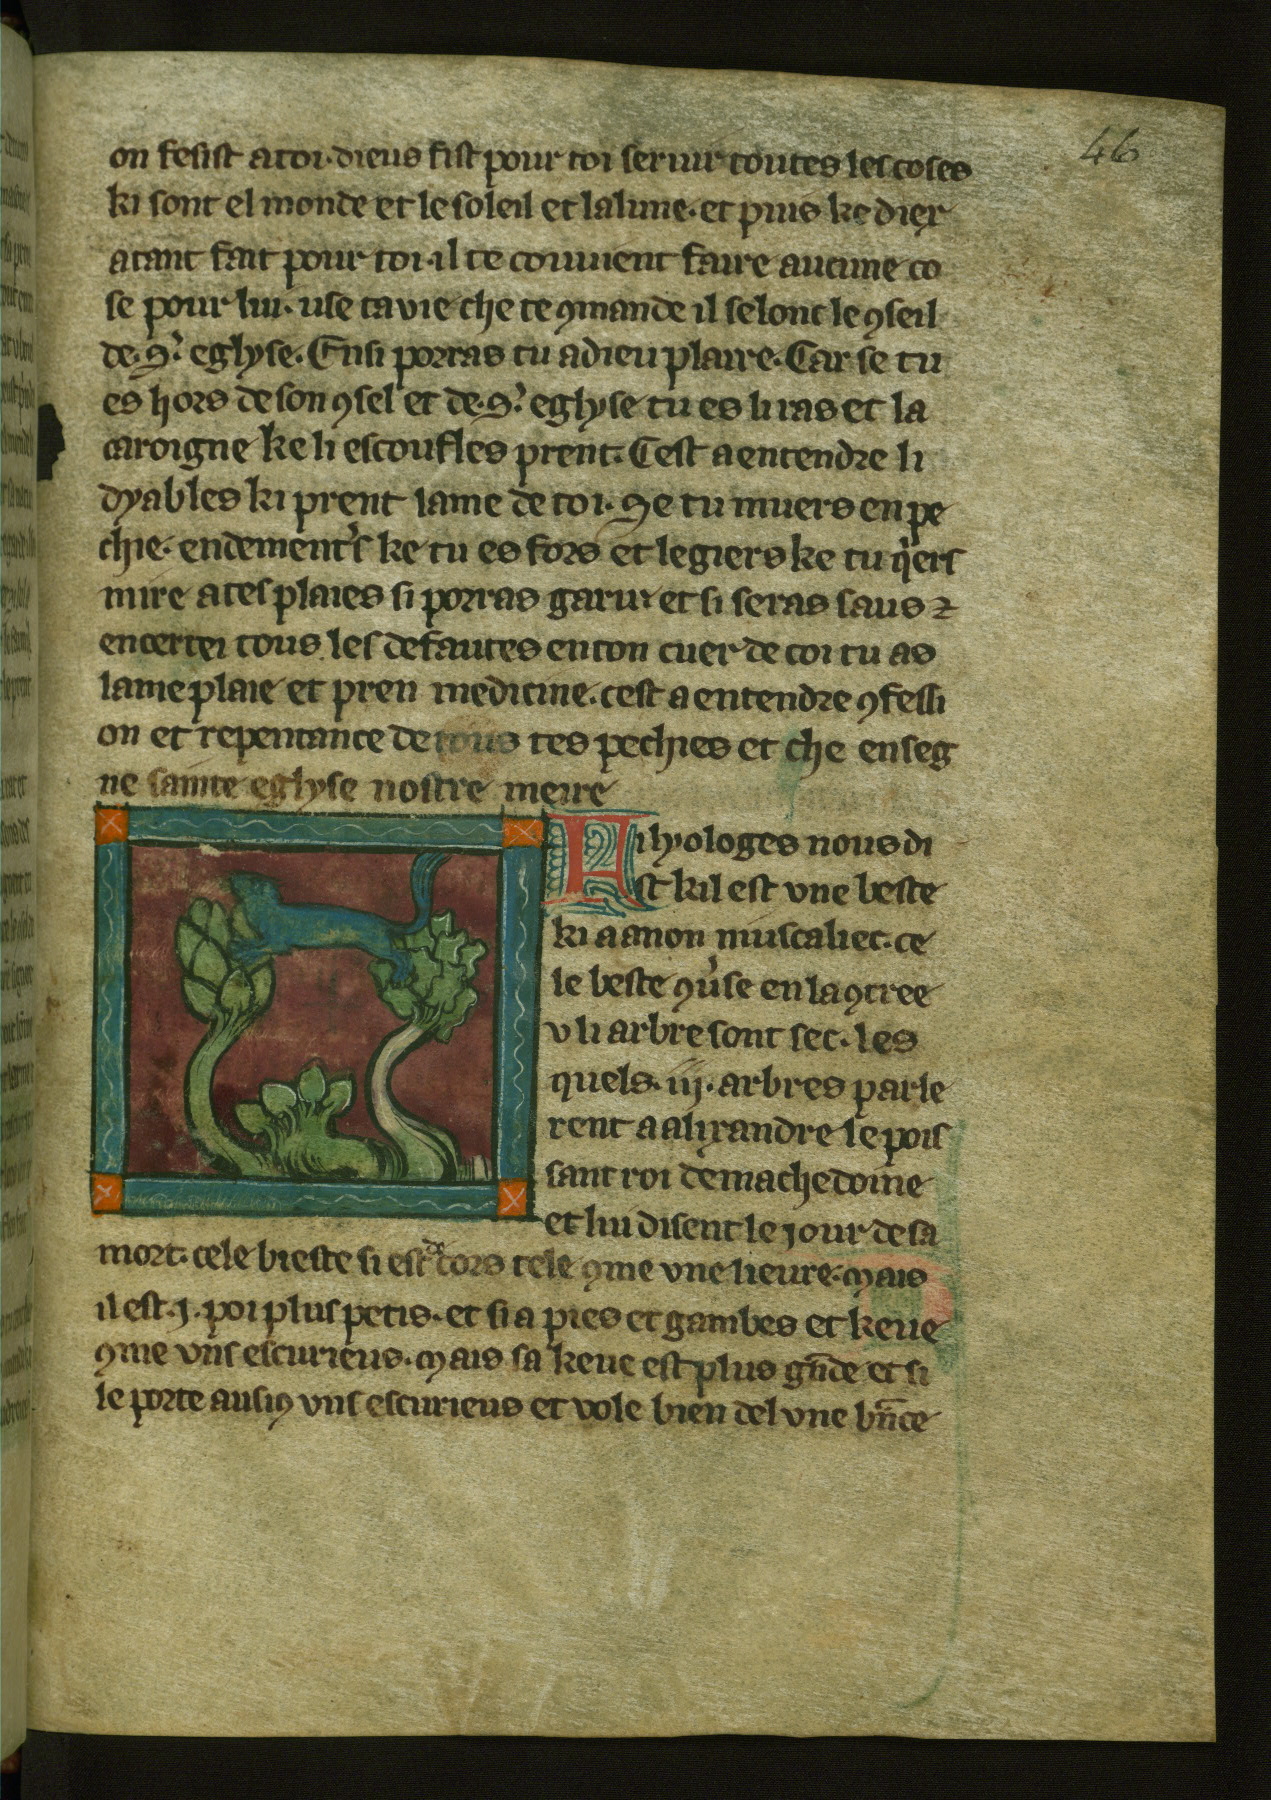 46
on fesist a toi. dieus fist pour toi seruir toutes les coses
ki sont el monde et le soleil et la lune. et puis ke diex
a tant fait pour toi. il te couuient faire aucune co
se pour lui. use ta vie che te ꝯmande il selonc le ꝯseil
de. Sͣ. eglyse. Ensi porras tu a dieu plaire. Car se tu
es hors de son ꝯsel et de. Sͣ. eglyse tu es li ras et la
caroigne ke li escoufles prent. Cest a entendre li
dyables ki prent lame de toi. Se tu muers en pe
chie. endement's ke tu es fors et legiers ke tu q̇ers
mire a tes plaies si porras garir et si seras saus ⁊
encerkei tous les defautes en ton cuer de toi tu as
lame plaie et pren medicine. cest a entendre ꝯfessi
on et repentance de tous tes pechies et che enseg
ne sainte eglyse nostre meire
Phyologes nous di
st kil est vne beste
ki a anon muscaliet. ce
le beste ꝯu'se en la ꝯtree
v li arbre sont sec. les
quels. iij. arbres parle
rent a alixandre le pois
sant roi de machedoine
et lui disent le jour de sa
mort. cele bieste si est de cors tele ꝯme vne lieure. mais
il est. j. poi plus petis. et si a pies et gambes et keue
ꝯme vns escurieus. mais sa keue est plus gn̄de et si
le porte ausiꝯ vns escurieus et vole bien del vne bn̄ce